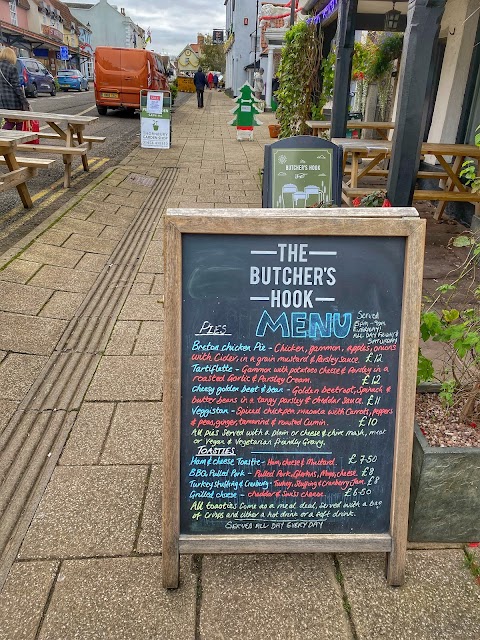 THE
BUTCHER'S HOOK
THE
BUTCHER'S
HOOK
MENU
Served
5pm - 9pm
Everyday
All Day Friday &
Saturday
PIES
Breton chicken Pie - Chicken, gammon, apples, onions
with Cider, in a grain mustard & Parsley Sauce. £12
Tartiflette - Gammon with potatoes cheese & Parsley in a
roasted Garlic & Parsley Cream. £12
Cheesy golden beet & bean - Golden beetroot, Spinach &
butter beans in a tangy parsley & cheddar Sauce. £11
Veggistan - Spiced chickpea masala with Carrots, peppers
& peas, ginger, tamarind & roasted Cumin. £10
All pies Served with a plain or cheese & chive mash, meat
or Vegan & Vegetarian friendly Gravy.
TOASTIES
Ham & cheese Toastie - Ham, cheese & Mustard. £7-50
BBQ Pulled Pork - Pulled Pork, Mayo, cheese £8
Turkey, Stuffing & Cranberry - Turkey, Stuffing & Cranberry Jam. £8
Grilled cheese - cheddar & Swiss cheese. £6-50
All toasties come as a meal deal, Served with a bag
of crisps and either a hot drink or a soft drink.
SERVED ALL DAY EVERY DAY